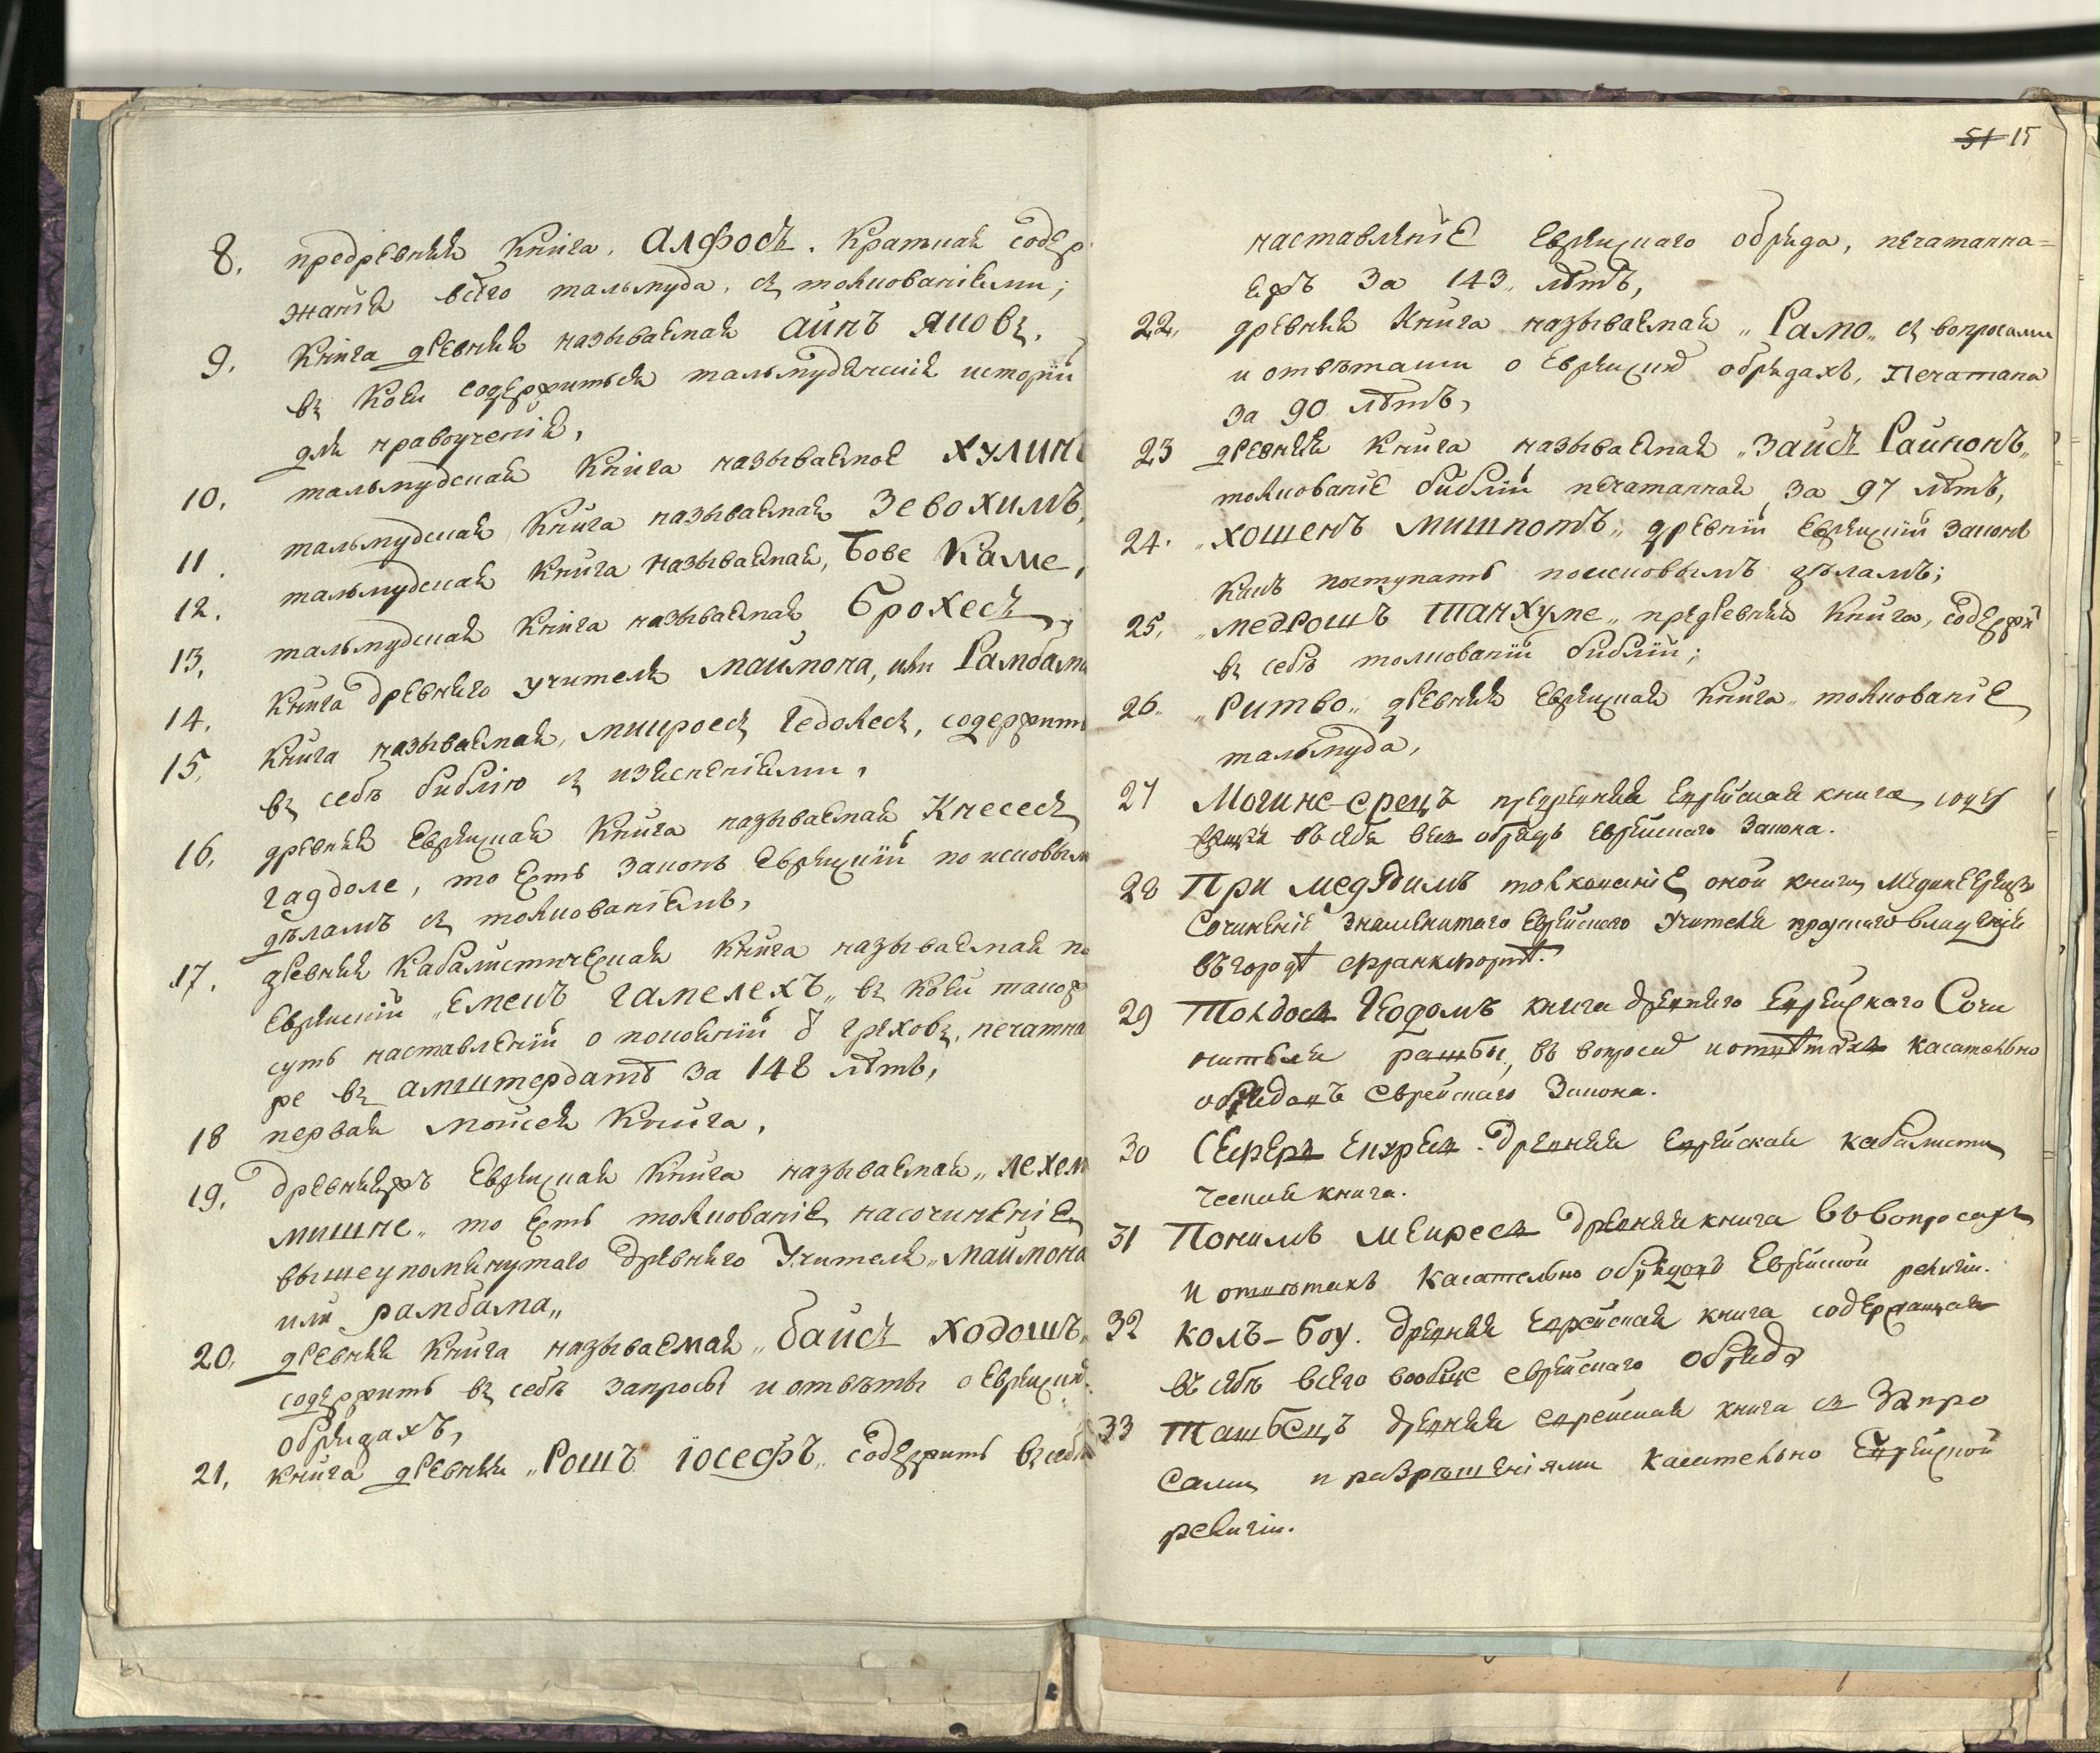 8. предревняя Книга, Алфосъ. Краткая содер
жанія всего тальмуда, съ толкованіями;
9. Книга древняя называемая Аинъ Яковъ,
въ коей содержиться тальмудическія исторіи
для нравоученія,
10. тальмудская Книга называемое Хулинъ
11. тальмудская Книга называемая Зевохимъ,
12. тальмудская Книга называемая, Бове Каме,
13. тальмудская Книга называемая Брохесъ,
14. Книга древняго учителя маймона, или Рамбама
15. Книга называемая, микроесъ гедолесъ, содержитъ
въ себѣ библію съ изясненіями,
16. древняя Еврейская Книга называемая Кнесесъ
гадоле, то есть законъ Еврейскій по исковымъ
дѣламъ съ толкованіемъ,
17. древняя Кабалистическая Книга называемая по
Еврейскій „Емекъ гамелехъ„ въ коей также
суть наставленій о покояній о греховъ, печатна
ре въ амштердатѣ за 148 лѣтъ,
18 первая моисея Книга,
19. древняяжъ Еврейская Книга называемая „лехем
мишне„ то есть толкованіе на сочиненіе
вышеупомянутаго древняго Учителя „маймона
или рамбама„
20. древняя Книга называемая „байсъ ходошъ„
содержитъ въ себѣ запросы и отвѣты о Еврейскихъ
обрядахъ,
21. книга древняя „Рошъ іосефъ„ содержитъ въ себѣ
51 15
наставленіе Еврейскаго обряда, печатанна=
яжъ за 143 лѣтъ,
22. древняя Книга называемая „Рамо„ съ вопросами
и отвѣтами о Еврейскихъ обрядахъ, печатана
за 90 лѣтъ,
23 древняя Книга называемая „Зайсъ Райнонъ„
толкованіе библіи печатанная за 97 лѣтъ,
24. „Хошенъ Мишпотъ„ древній Еврейскій законъ
какъ поступать по исковымъ дѣламъ;
25. „Медрошъ Танхуме„ предревняя Книга, содержи
въ себѣ толкованій библій;
26. „Ритво„ древняя Еврейская Книга „толкованіе
тальмуда,
27 Могине-Ерецъ предревняя Еврейская книга, содер
жащая въ себѣ весь обрядъ еврейскаго закона.
28 При Медядимъ толкованіе оной книги Мгинеерецъ
Сочиненіе знаменитаго Еврейскаго Учителя прускаго владенія
въ городѣ Франкфортѣ.
29 Толдосъ Іодомъ книга древняго Еврейскаго Сочи
нителя рашбы, въ вопросахъ и отвѣтахъ касательно
обрядовъ Еврейскаго Закона.
30 Древняя Еврейская кабалисти
ческая книга.
31 Понимъ Меиресъ древняя книга въ вопросахъ
и отвѣтахъ касательно обрядовъ Еврейской религіи.
32 Колъ-Боу. древняя Еврейская книга содержащая
въ себѣ всего вообще еврейскаго обряда
33 Ташбецъ древняя еврейская книга съ запро
сами и разрѣшеніями касательно Еврейской
религіи.